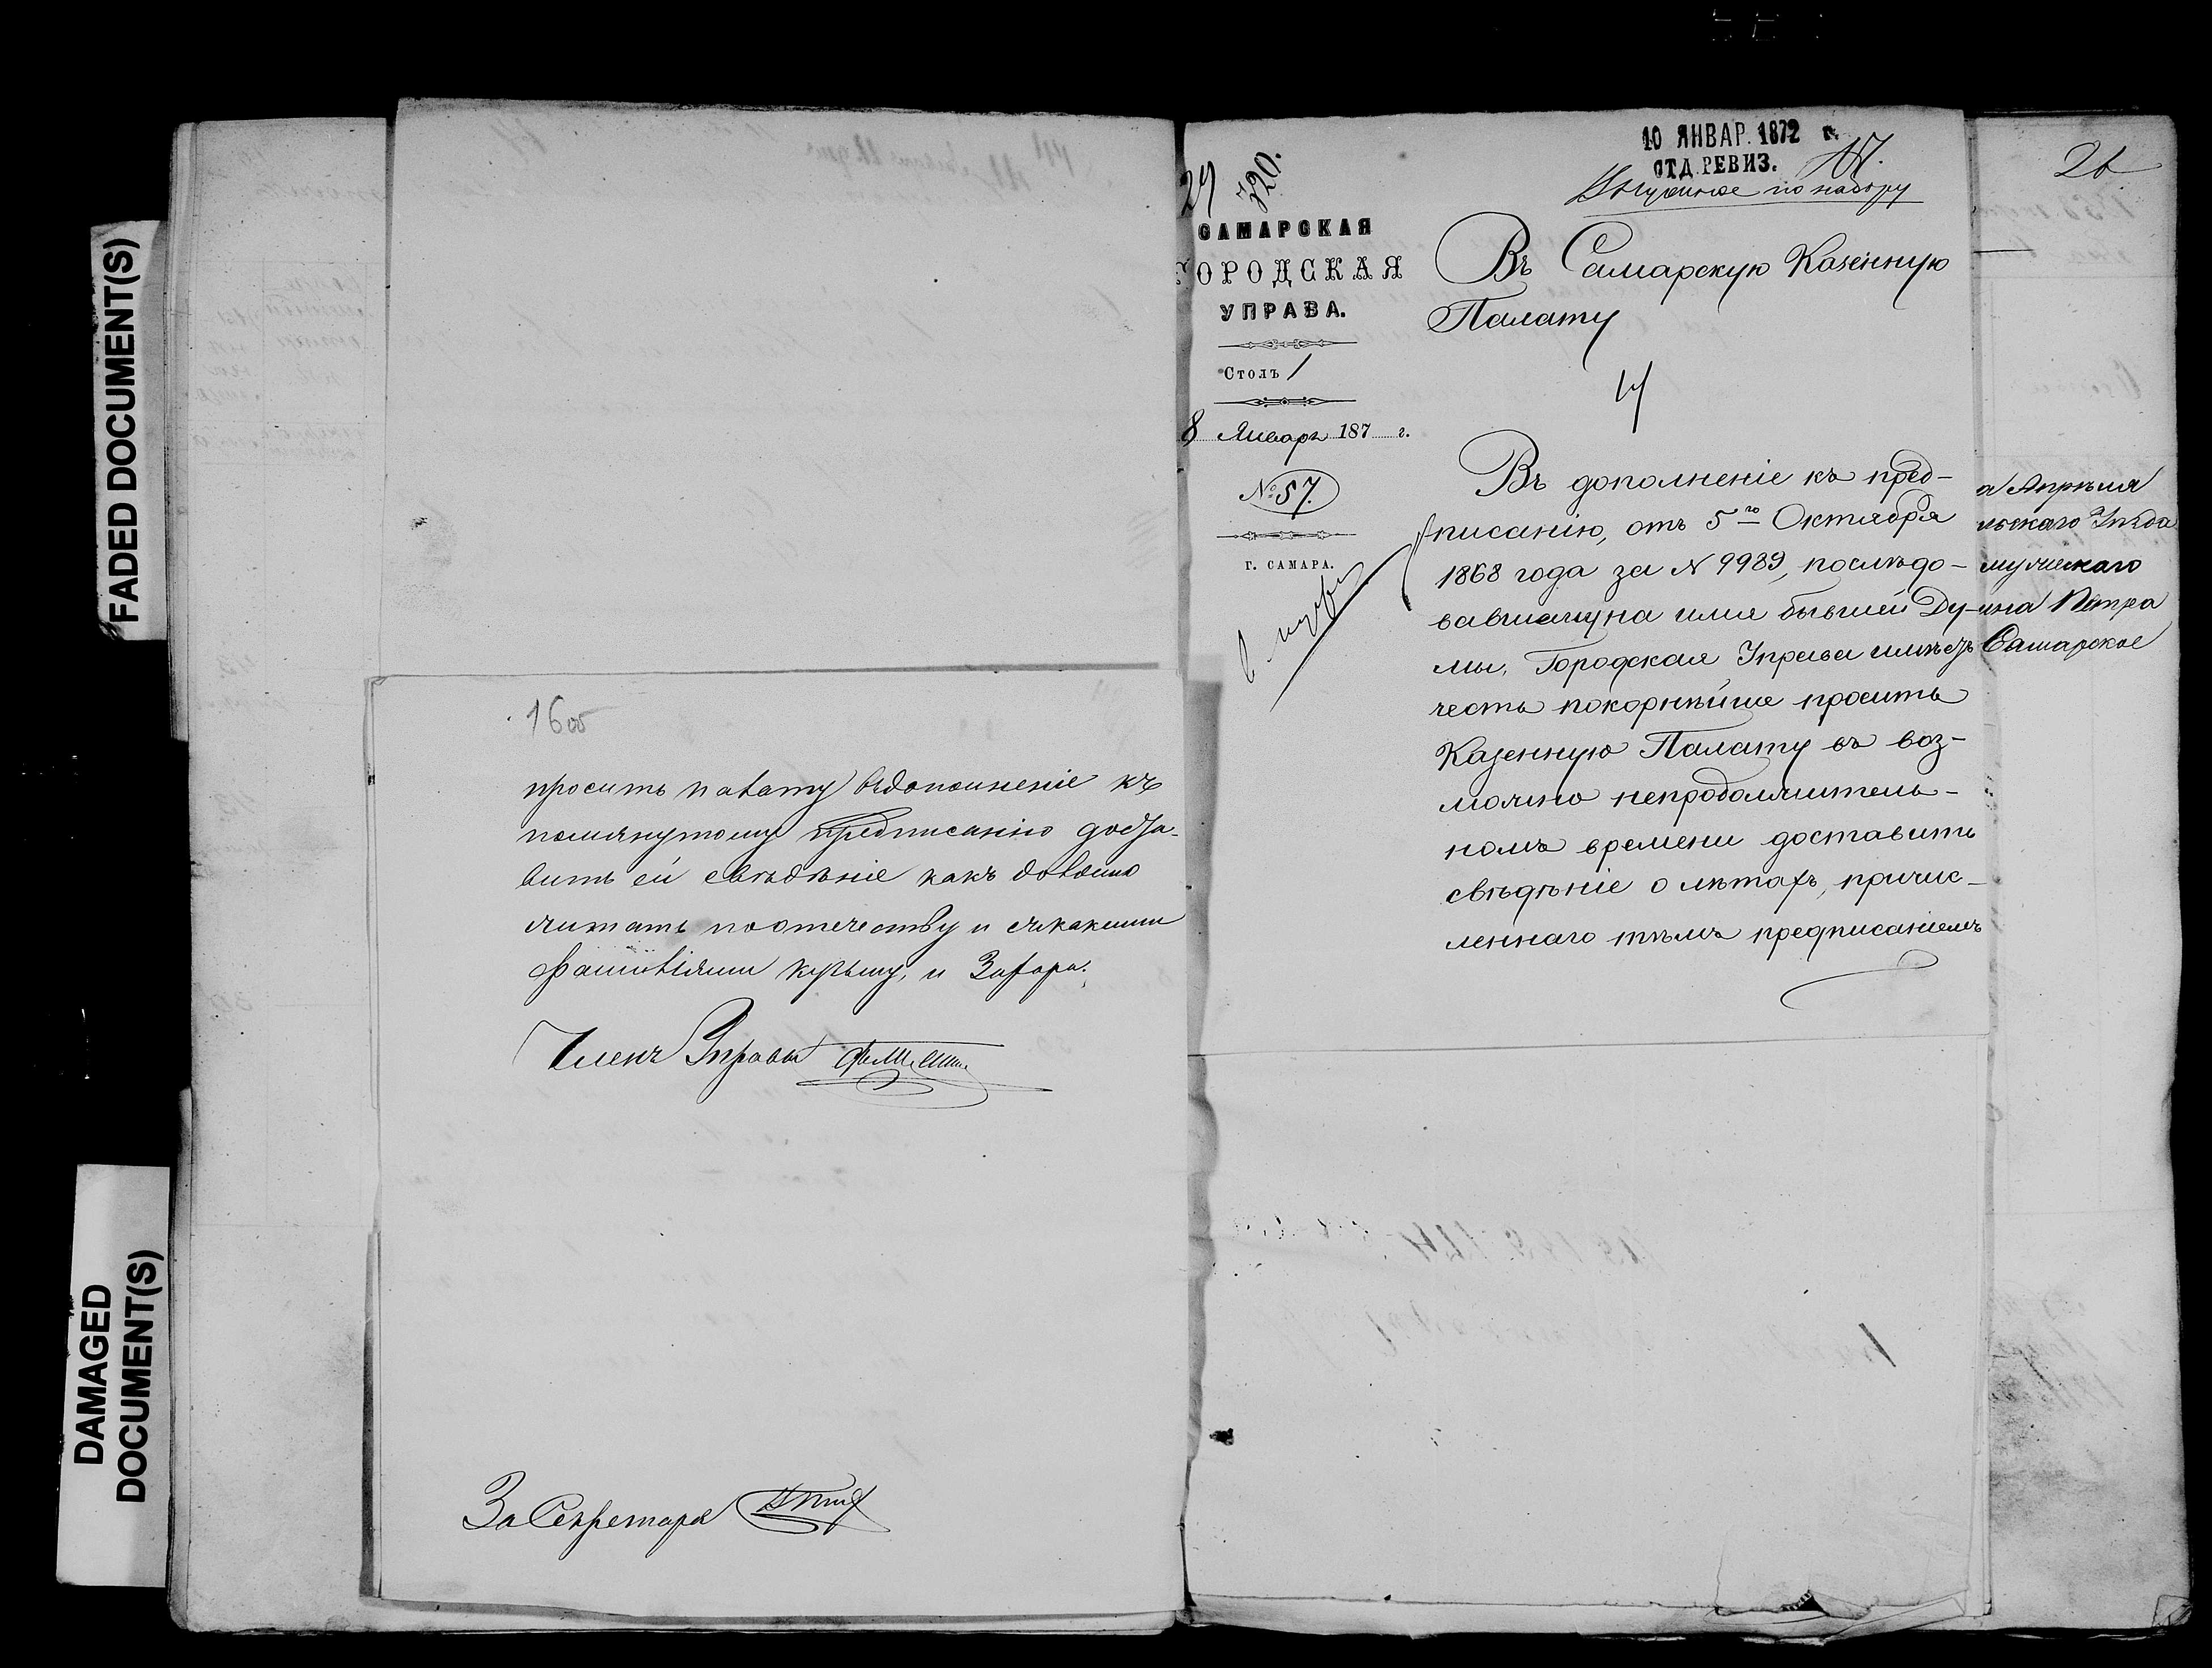 FADED DOCUMENT(S)
DAMAGED
DOCUMENT(S)
16об
просить палату въ дополненіе къ
помянутому предписанію доста-
вить ей свѣдѣніе какъ должно
считать по отечеству и съ какими
фамиліями
Членъ Управы
За Секретаря
10 ЯНВАР. 1872 г.
ОТД. РЕВИЗ.
по набору
29
720.
САМАРСКАЯ
ГОРОДСКАЯ
УПРАВА.
Столъ 1
8 Январь 187 г.
№ 57.
Г. САМАРА.
Въ Самарскую Казенную
Палату
Въ дополненіе къ пред-
писанію, отъ 5го Октября
1868 года за N 9989, послѣдо-
вавшему на имя бывшей Ду-
мы, Городская Управа имѣетъ
честь покорнѣйше просить
Казенную Палату въ воз-
можно непродолжитель-
номъ времени доставить
свѣдѣніе о лѣтахъ, причис-
леннаго тѣмъ предписаніемъ
а Апрѣля
льскаго Уѣзда
ина Петра
Самарское